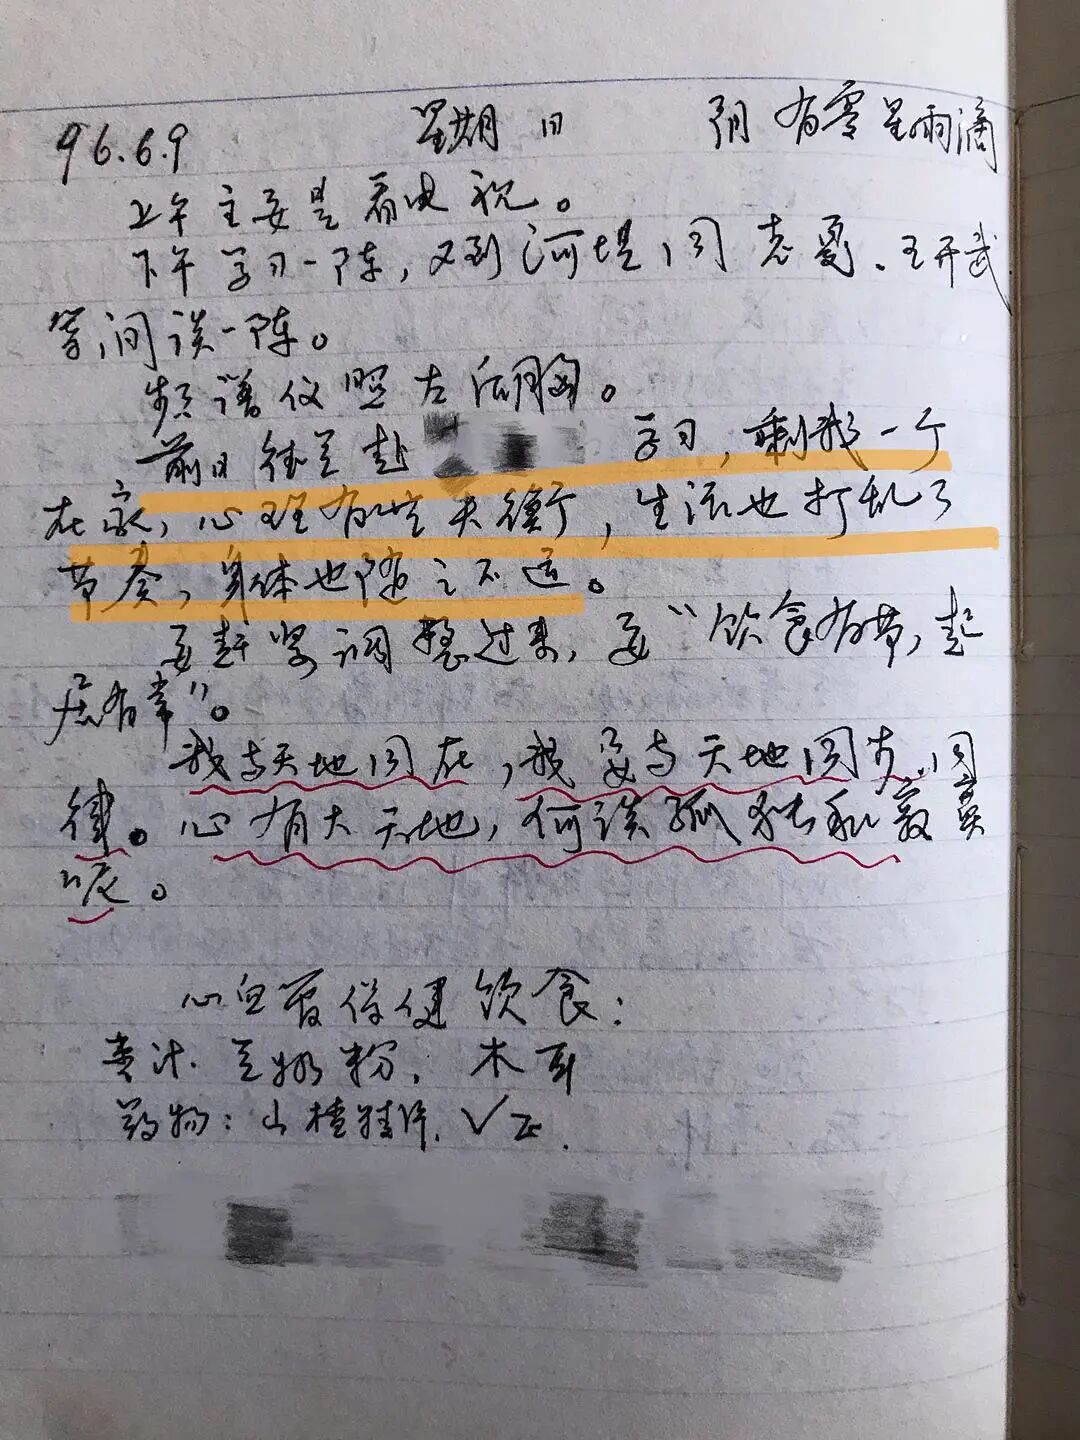 96.6.9 星期日 阴 有零星雨滴
上午主要是看电视。
下午学习一阵，又到河堤同志夏、王开武
等闲谈一阵。
频谱仪照左后胸。
前日 赴 学习，剩我一个
在家，心理有些失衡，生活也打乱了
节奏，身体也随之不适。
要赶紧调整过来，要“饮食有节，起
居有常”。
我与天地同在，我要与天地同步、同
律。心有大天地，何谈孤独和寂寞
哉。
心血管保健饮食：
豆奶粉、木耳
药物：山楂精片、VE.